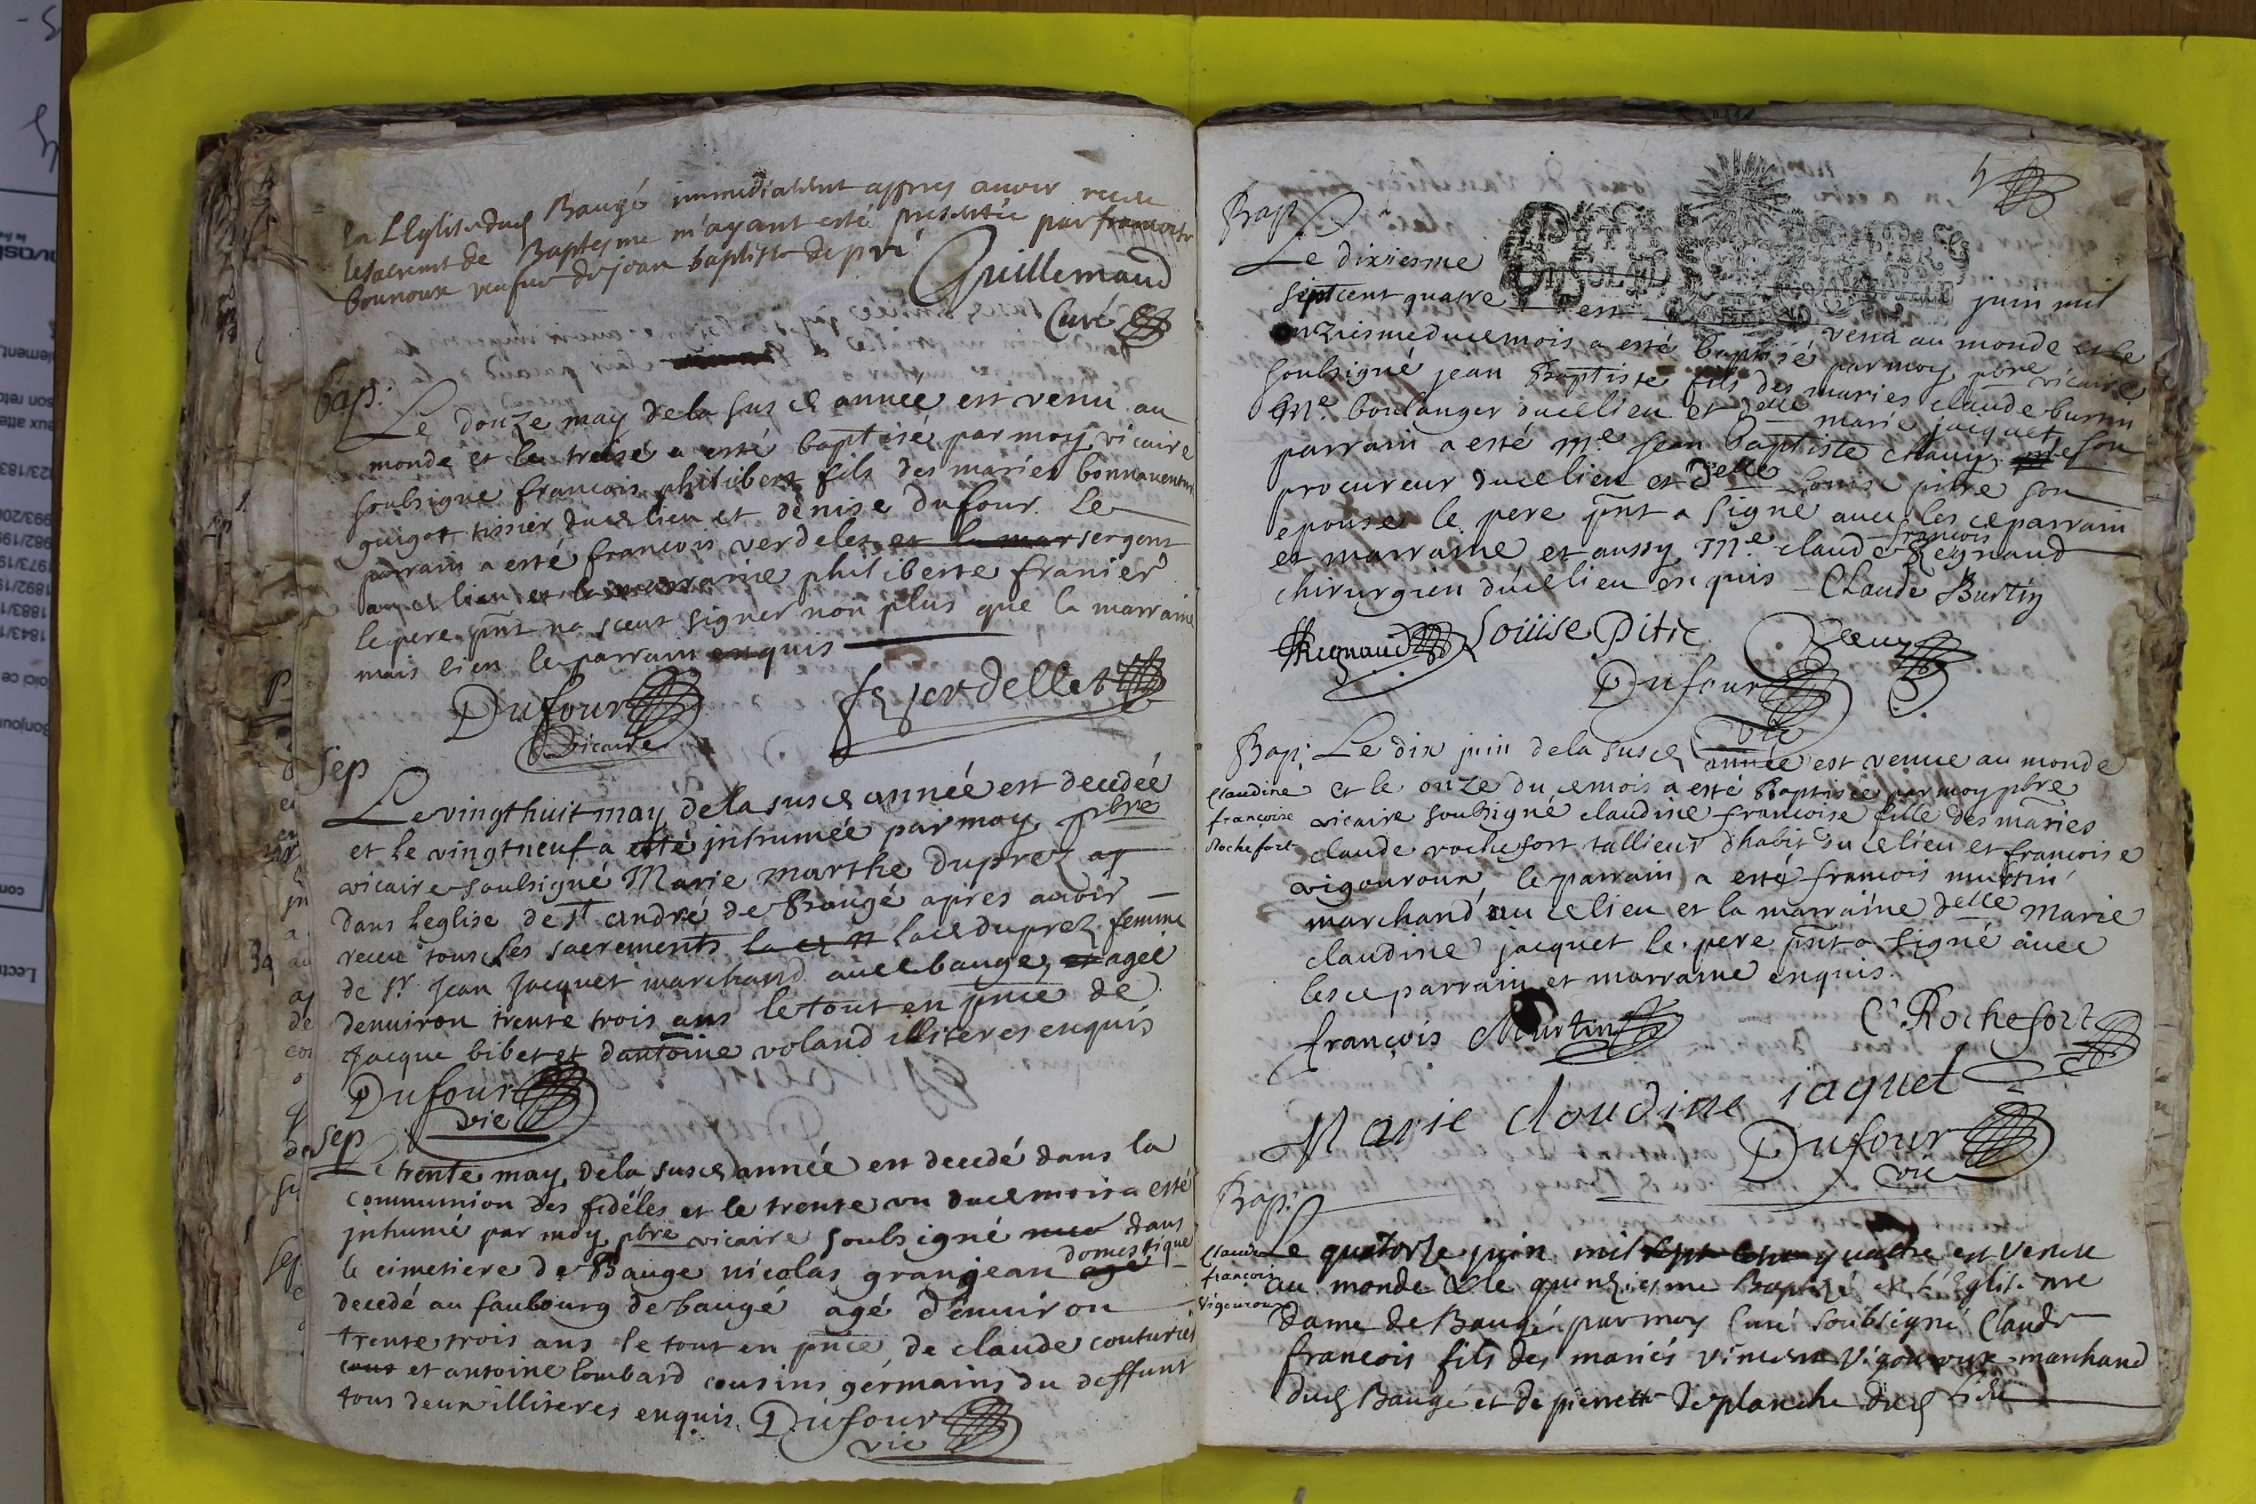 En L'Eglise dud Baugé immediatem't appres avoir receu
le sacrem't de Baptesme m'ayant esté presentée par francoise
bounoux veufue de jean baptiste depré
Guillemaud
Curé
bap:
Le douze may de la susd annee est venu au
monde et le treise a esté baptisé par moy vicaire
soubsigne francois philibert fils des maries bonnaventure
guigot tissier dud lieu et denise Dufour. Le
parrain a esté francois verdelet et la mar sergent
aud lieu et la marraine philiberte franier
le pere pnt na sceut signer non plus que la marraine
mais bien le parrain enquis
Dufour
vicaire
fs verdellet
Sep
Le vingthuit may de la susd année est decedée
et le vingtneuf a esté inhumée par moy pbre
vicaire soubsigné Marie marthe Duprez
dans leglise de st andré de Baugé apres avoir
receu tous les sacrements lad n lad duprez femme
de sr Jean Jacquet marchand aud bauge et agee
denuiron trente trois ans le tout en pnce de
Jacque bibet et dantoine voland illiteres enquis
Dufour
vic
Sep
Le trente may de la susd année est decedé dans la
communion des fidéles et le trente un dud mois a esté
inhumé par moy pbre vicaire soubsigné dans
le cimetiere de Bauge nicolas granjean agé domestique
decedé au faubourg de baugé agé d'enuiron
trente trois ans le tout en pnce de claude couturier
cous et antoine lombard cousins germains du deffunt
tous deux illiteres enquis. Dufour
vic
Bap:
Le dixiesme
juin mil
septcent quatre est venu au monde et le
onziesme du ce mois a esté baptisé par moy pbre vicaire
soubsigné jean Baptiste fils des maries claude burtin
Me boulanger du ce lieu et delle marie jacquet, son
parrain a esté me Jean Baptiste
procureur du ce lieu et Delle Louise pitre son
epouse le pere pnt a signé avec les ce parrain
et marraine et aussy Me claude francois Regnaud
chirurgien du ce lieu enquis Claude Burtin
Regnaud Loüise Pitre
Dufour
vic
Bap: Le dix juin de la susd année est venue au monde
Claudine françoise Rochefort
et le onze du ce mois a esté Baptisée par moy pbre
vicaire soubsigné claudine francoise fille des maries
claude rochefort tallieur dhabit du ce lieu et francoise
vigouroux le parrain a esté francois murtin
marchand au ce lieu et la marraine delle Marie
claudine jacquet le pere pnt a signé avec
les ce parrain et marraine enquis.
françois Murtin C Rochefort
Marie cloudine iaquet
Dufour
vic
Bap:
Claude françois Vigouroux
Le quatorze juin mil sept cent quatre est venue
au monde & le quinziesme Baptizé en l'Eglise nre
dame de Baugé par moy Curé soubsigné Claude
francois fils des mariés vincent Vigouroux marchand
dud Baugé et de pierrette Deplanche dud lieu